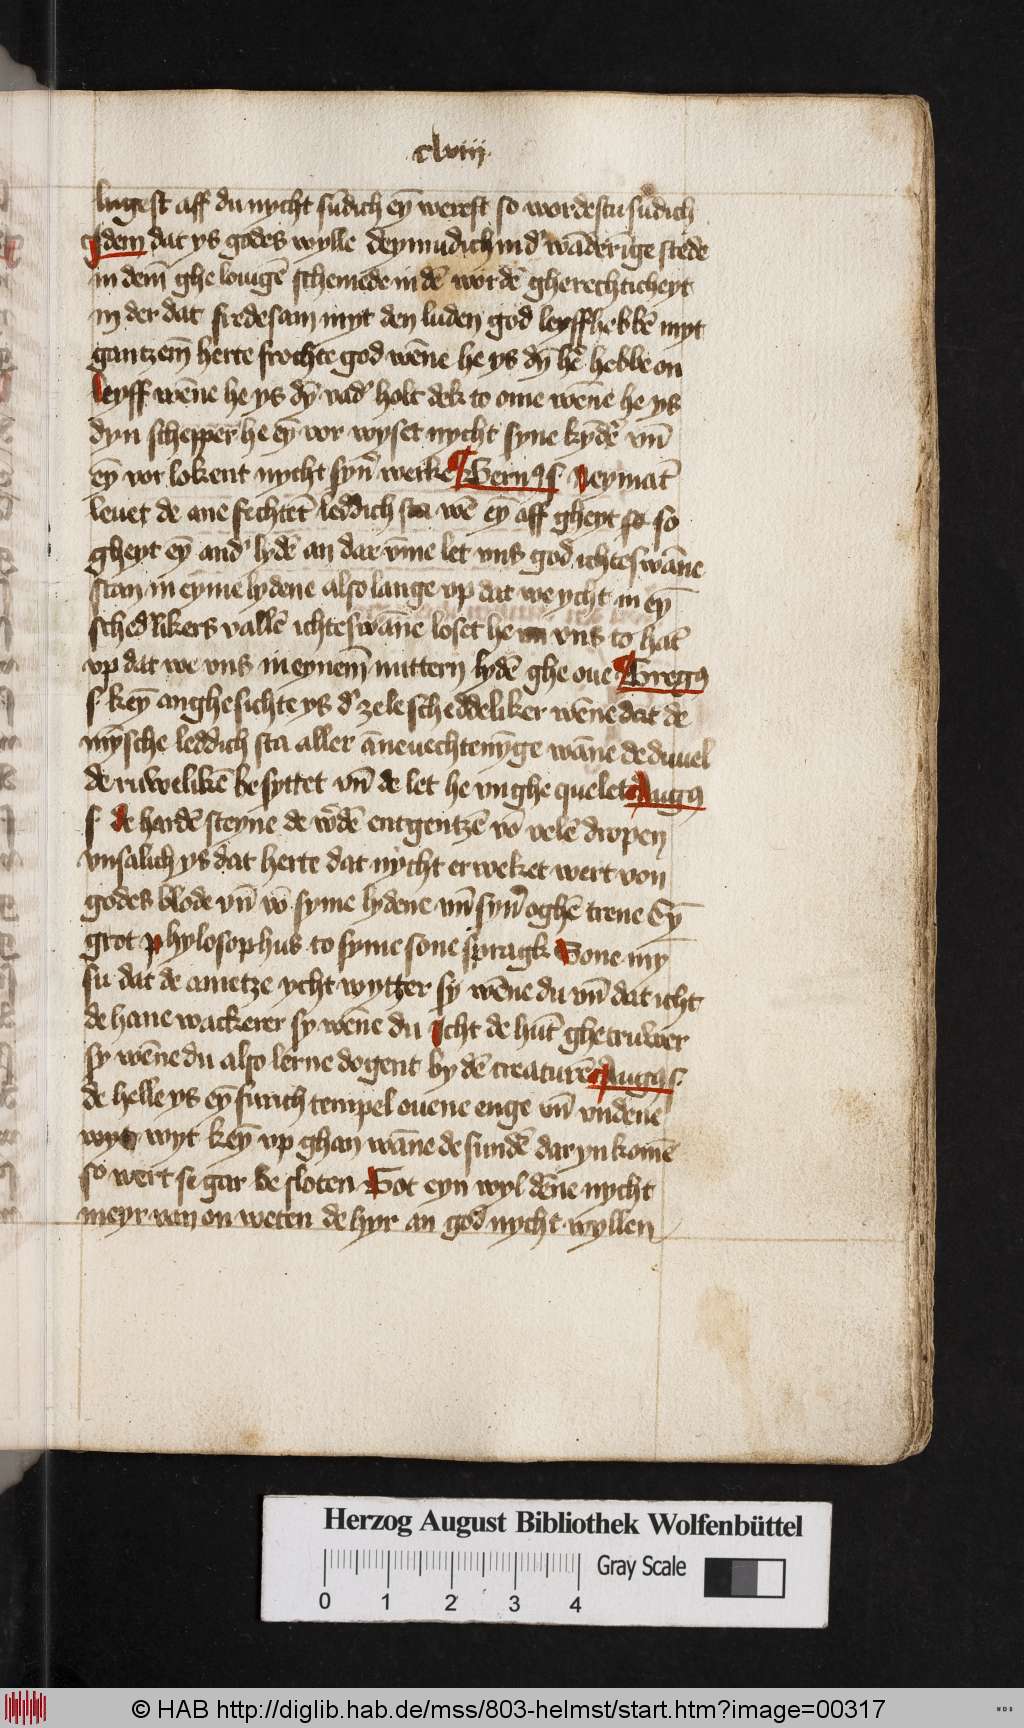 clviij
lugest aff du nycht sundich ey̅ werest so wordestu sūdich
Idem dat ys godes wylle deymudich in d' wāderīge stede
in dem̅ ghe louigē schemede in dē wordē gherechticheyt
in der dat fredesam myt den luden god leyff hebbē myt
gantzem̅ herte frochte god wēne he ys dȳ hē hebbe on
leyff wēne he ys dȳ vad' holt dek to ome wēne he ys
dyn schepper he ey̅ vor wyset nycht syne kyd'e vn̅
ey̅ vor loket nycht syn' werke Bern9 s. neymāt
leuet de ane fechtēt leddich sta wē ey̅ aff gheyt so
gheyt ey̅ and' lydē an dar v̅me let vns god ichteswāne
stan in eyme lydene also lange vp dat we ycht in ey̅
schedlikers vallē ichteswāne loset he vns to hāt
vp dat we vns in eynem̅ nuttern lydē ghe oue Greg9
s. key̅ anghesichte ys d' zele scheddeliker wēne dat de
mȳsche leddich sta aller āneuechtenȳge wāne de duuel
de ruwelikē besyttet vn̅ de let he vnghe quelet Aug9
s. de hardē steyne de w'dē entgentzē vō velē dropen
vnsalich ys dat herte dat nycht erweket wert von
godes blode vn̅ vō syme lydene vn̅ syn' oghē trene Ey̅
grot phylosophus to syme sone spragk Sone my̅
su dat de ametze ycht wytzer sy wēne du vn̅ dat icht
de hane wackerer sy wēne du icht de hūt ghetruwer
sy wēne du also lerne dogent by dē creaturē Aug9 s.
de helle ys ey̅ furich tempel ouene enge vn̅ vndene
wyt key̅ vp ghan wāne de sundē dar yn komē
so wert se gar be sloten Got eyn wyl dēne nycht
meyr van on weten de hyr an god nycht wyllen
Herzog August Bibliothek Wolfenbüttel
Gray Scale
0 1 2 3 4
© HAB http://diglib.hab.de/mss/803-helmst/start.htm?image=00317